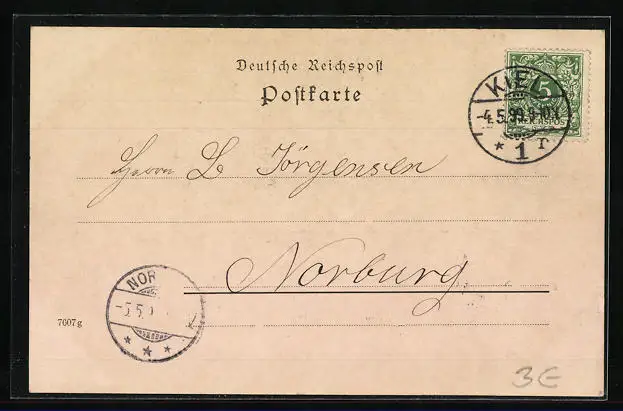 Deutsche Reichspost
Postkarte
KIEL
-4.5.99.9-10V
* 1 r.
5
REICHSPOST
Herrn L Jörgensen
Norburg.
NOR
-5.5.
* * *
7607g
3€